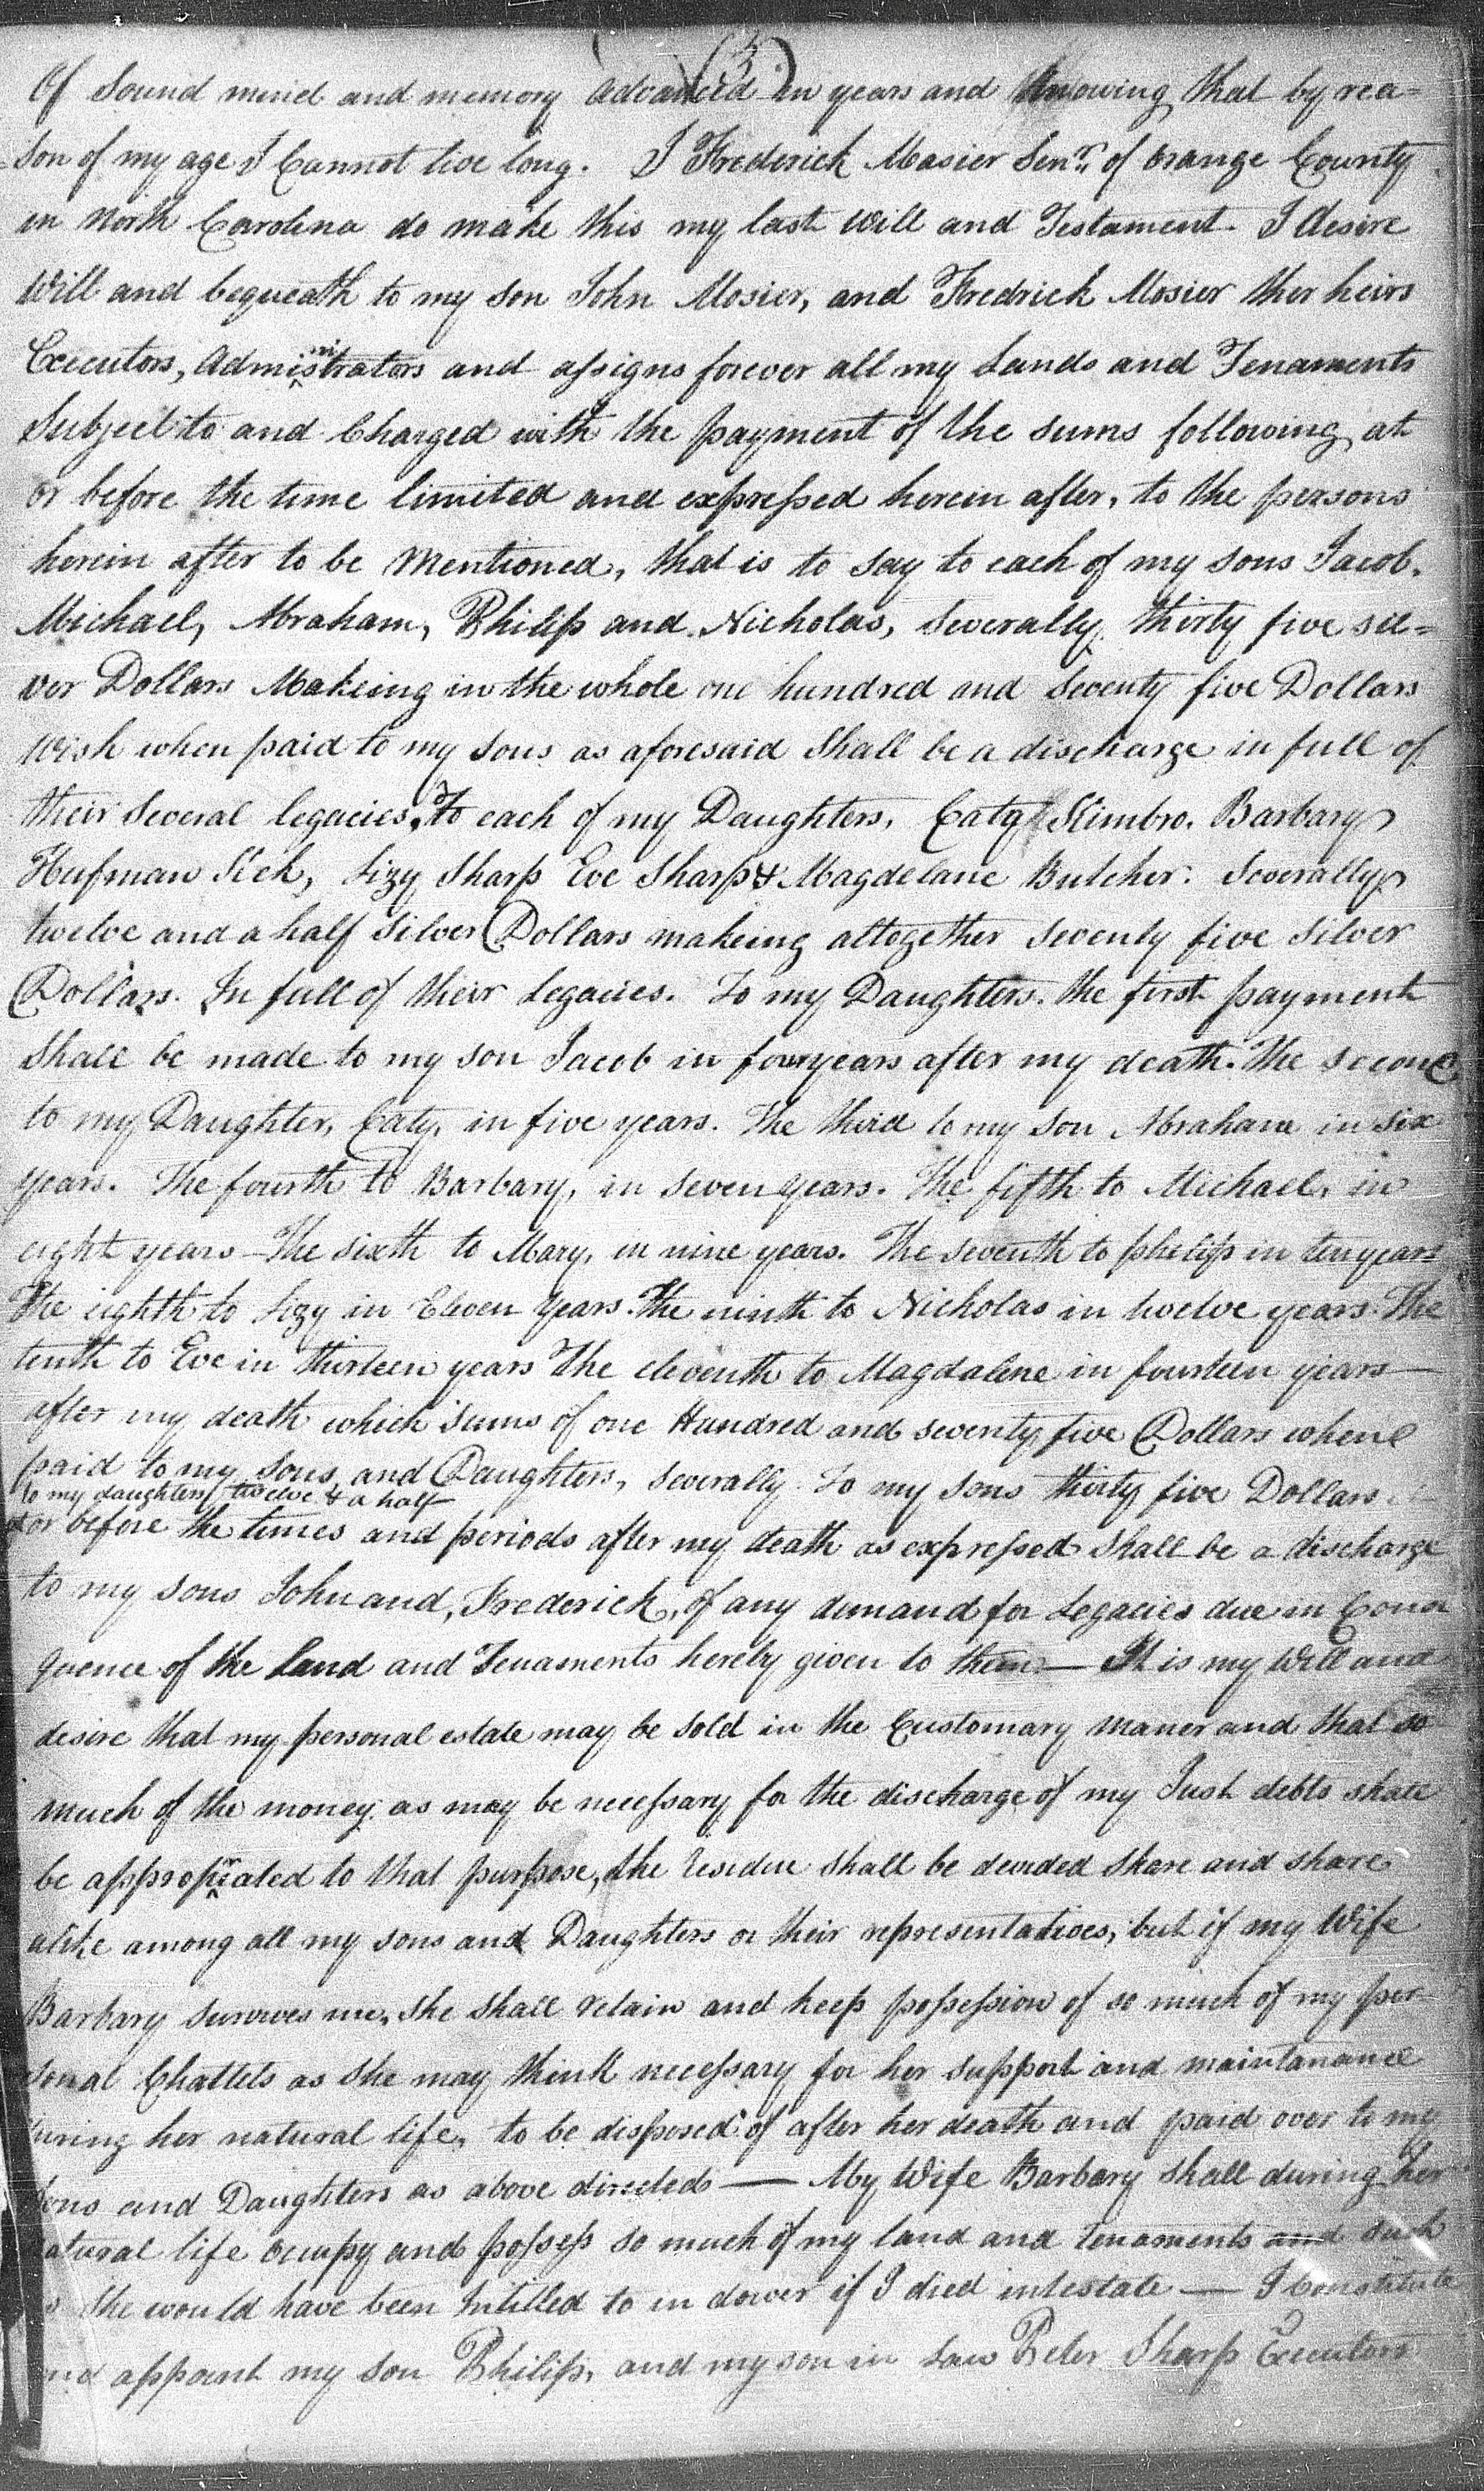 (3)
Of Sound mind and memory advanced in years and knowing that by rea=
=son of my age I Cannot live long. I Frederick Mosier Senr. of orange County
in North Carolina do make this my last Will and Testament. I desire
Will and bequeath to my son John Mosier, and Fredrick Mosier ther heirs
Executors, Administrators and assigns forever all my Lands and Tenaments
Subject to and Charged with the payment of the sums following, at
or before the time limited and expressed herein after, to the persons
herein after to be Mentioned, that is to say to each of my sons Jacob,
Michael, Abraham, Philip and Nicholas, Severally, thirty five sil=
ver Dollars Makeing in the whole one hundred and Seventy five Dollars
Wich when paid to my sons as aforesaid Shall be a discharge in full of
their Several legacies, To each of my Daughters, Caty Kimbro. Barbary
Hufman Sick, Lizy Sharp Eve Sharp & Magdelane Butcher. Severally
twelve and a half Silver Dollars makeing altogether seventy five Silver
Dollars. In full of their Legacies. To my Daughters. the first payment
Shall be made to my son Jacob in four years after my death. The second
to my Daughter, Caty, in five years. The third to my Son Abraham in six
years. The fourth to Barbary, in Seven years. The fifth to Michael, in
eight years - The sixth to Mary, in nine years. The Seventh to philip in ten years
The eighth to Lizy in Eleven years. The ninth to Nicholas in twelve years. The
tenth to Eve in thirteen years The eleventh to Magdalene in fourteen years —
after my death which sums of one Hundred and seventy five Dollars when
paid to my sons and Daughters, Severally. To my sons thirty five Dollars
to my daughters twelve & a half
or before the times and periods after my death as expressed Shall be a discharge
to my sons John and, Frederick, of any demand for Legacies due in Conse
quence of the Land and Tenaments hereby given to them — It is my Will and
desire that my personal estate may be sold in the Customary maner and that so
much of the money as may be necessary for the discharge of my Just debts shall
be appropriated to that purpose, the residue shall be devided share and share
alike among all my sons and Daughters or their representatives, but if my Wife
Barbary survives me, She Shall retain and keep possession of so much of my per
sonal Chattels as She may think necessary for her support and maintanance
during her natural life, to be disposed of after her death and paid over to my
Sons and Daughters as above directed — My Wife Barbary Shall during her
natural life occupy and possess so much of my land and Tenaments and such
as She would have been Intitled to in dower if I died intestate — I Constitute
and appoint my son Philip, and my son in Law Peter Sharp Executors